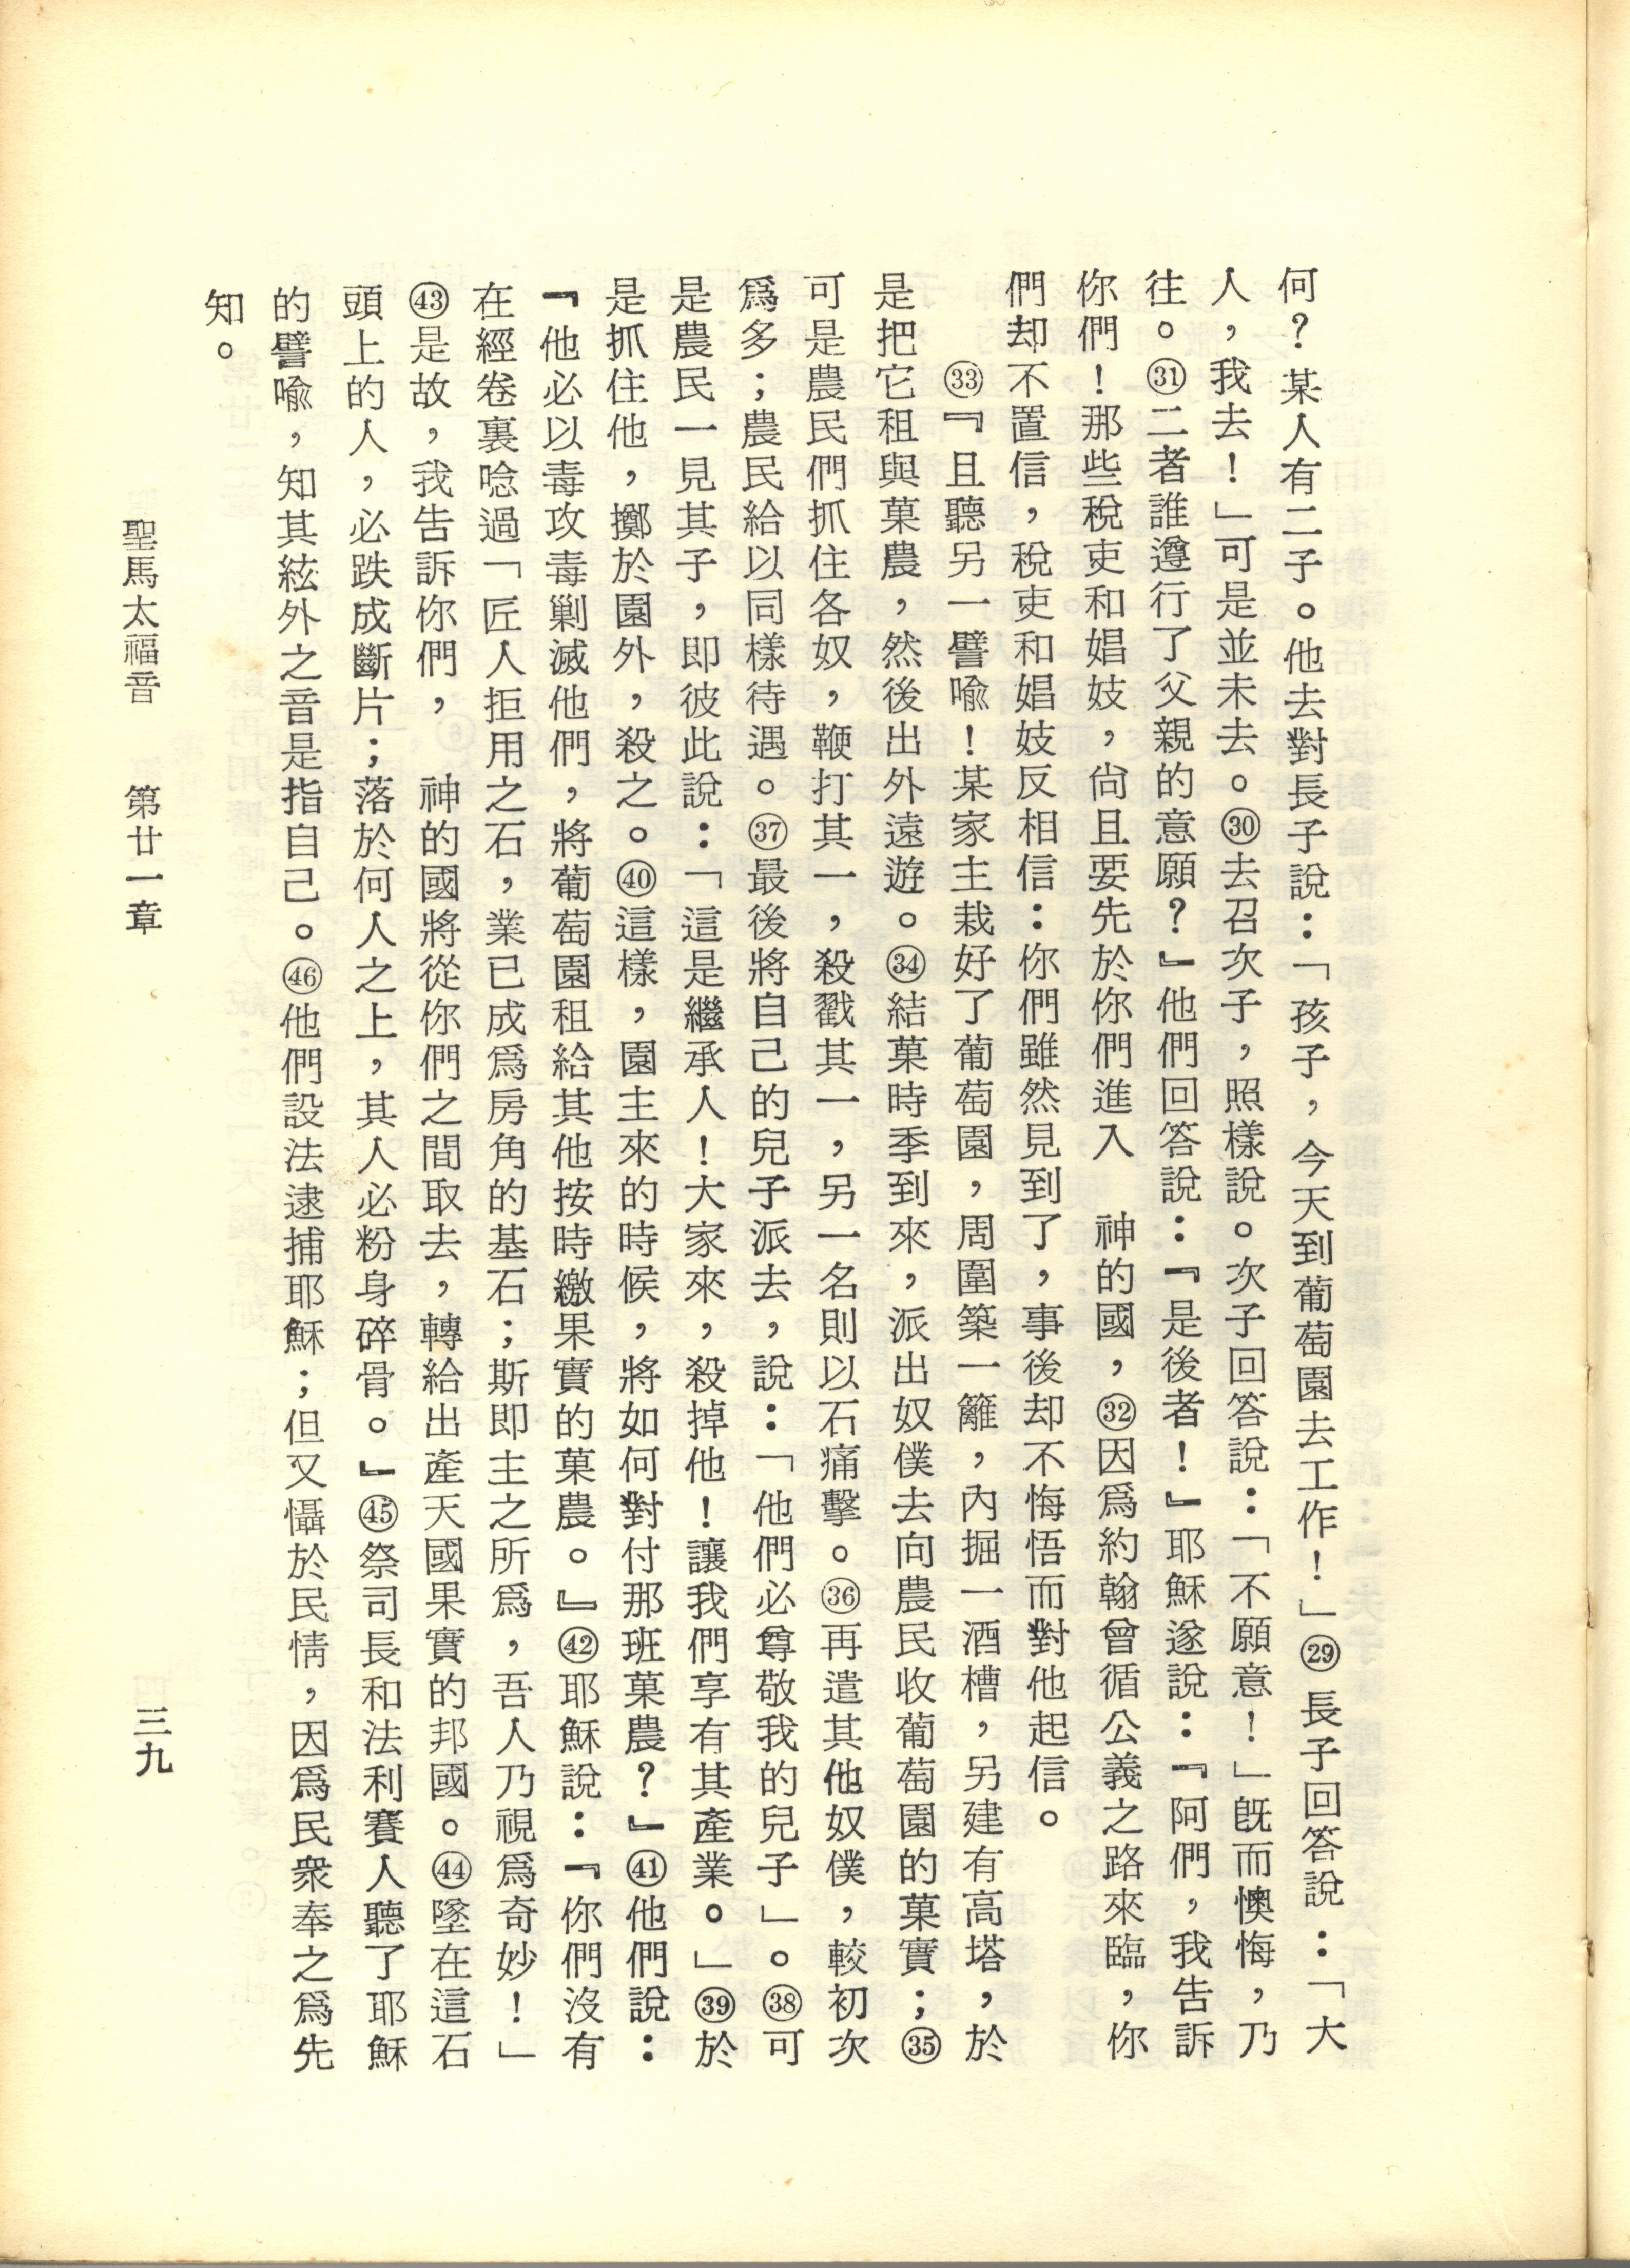 何？某人有二子。他去對長子說：「孩子，今天到葡萄園去工作！」㉙長子回答說：「大
人，我去！」可是並未去。㉚去召次子，照樣說。次子回答說：「不願意！」旣而懊悔，乃
往。㉛二者誰遵行了父親的意願？』他們回答說：『是後者！』耶穌遂說：『阿們，我告訴
你們！那些稅吏和娼妓，尙且要先於你們進入　神的國，㉜因爲約翰曾循公義之路來臨，你
們却不置信，稅吏和娼妓反相信：你們雖然見到了，事後却不悔悟而對他起信。
㉝『且聽另一譬喩！某家主栽好了葡萄園，周圍築一籬，內掘一酒槽，另建有高塔，於
是把它租與菓農，然後出外遠遊。㉞結菓時季到來，派出奴僕去向農民收葡萄園的菓實；㉟
可是農民們抓住各奴，鞭打其一，殺戳其一，另一名則以石痛擊。㊱再遣其他奴僕，較初次
爲多；農民給以同樣待遇。㊲最後將自己的兒子派去，說：「他們必尊敬我的兒子」。㊳可
是農民一見其子，即彼此說：「這是繼承人！大家來，殺掉他！讓我們享有其產業。」㊴於
是抓住他，擲於園外，殺之。㊵這樣，園主來的時候，將如何對付那班菓農？』㊶他們說：
『他必以毒攻毒剿滅他們，將葡萄園租給其他按時繳果實的菓農。』㊷耶穌說：『你們沒有
在經卷裏唸過「匠人拒用之石，業已成爲房角的基石；斯即主之所爲，吾人乃視爲奇妙！」
㊸是故，我告訴你們，　神的國將從你們之間取去，轉給出產天國果實的邦國。㊹墜在這石
頭上的人，必跌成斷片；落於何人之上，其人必粉身碎骨。』㊺祭司長和法利賽人聽了耶穌
的譬喩，知其絃外之音是指自己。㊻他們設法逮捕耶穌；但又懾於民情，因爲民衆奉之爲先
知。
聖馬太福音　第廿一章　三九